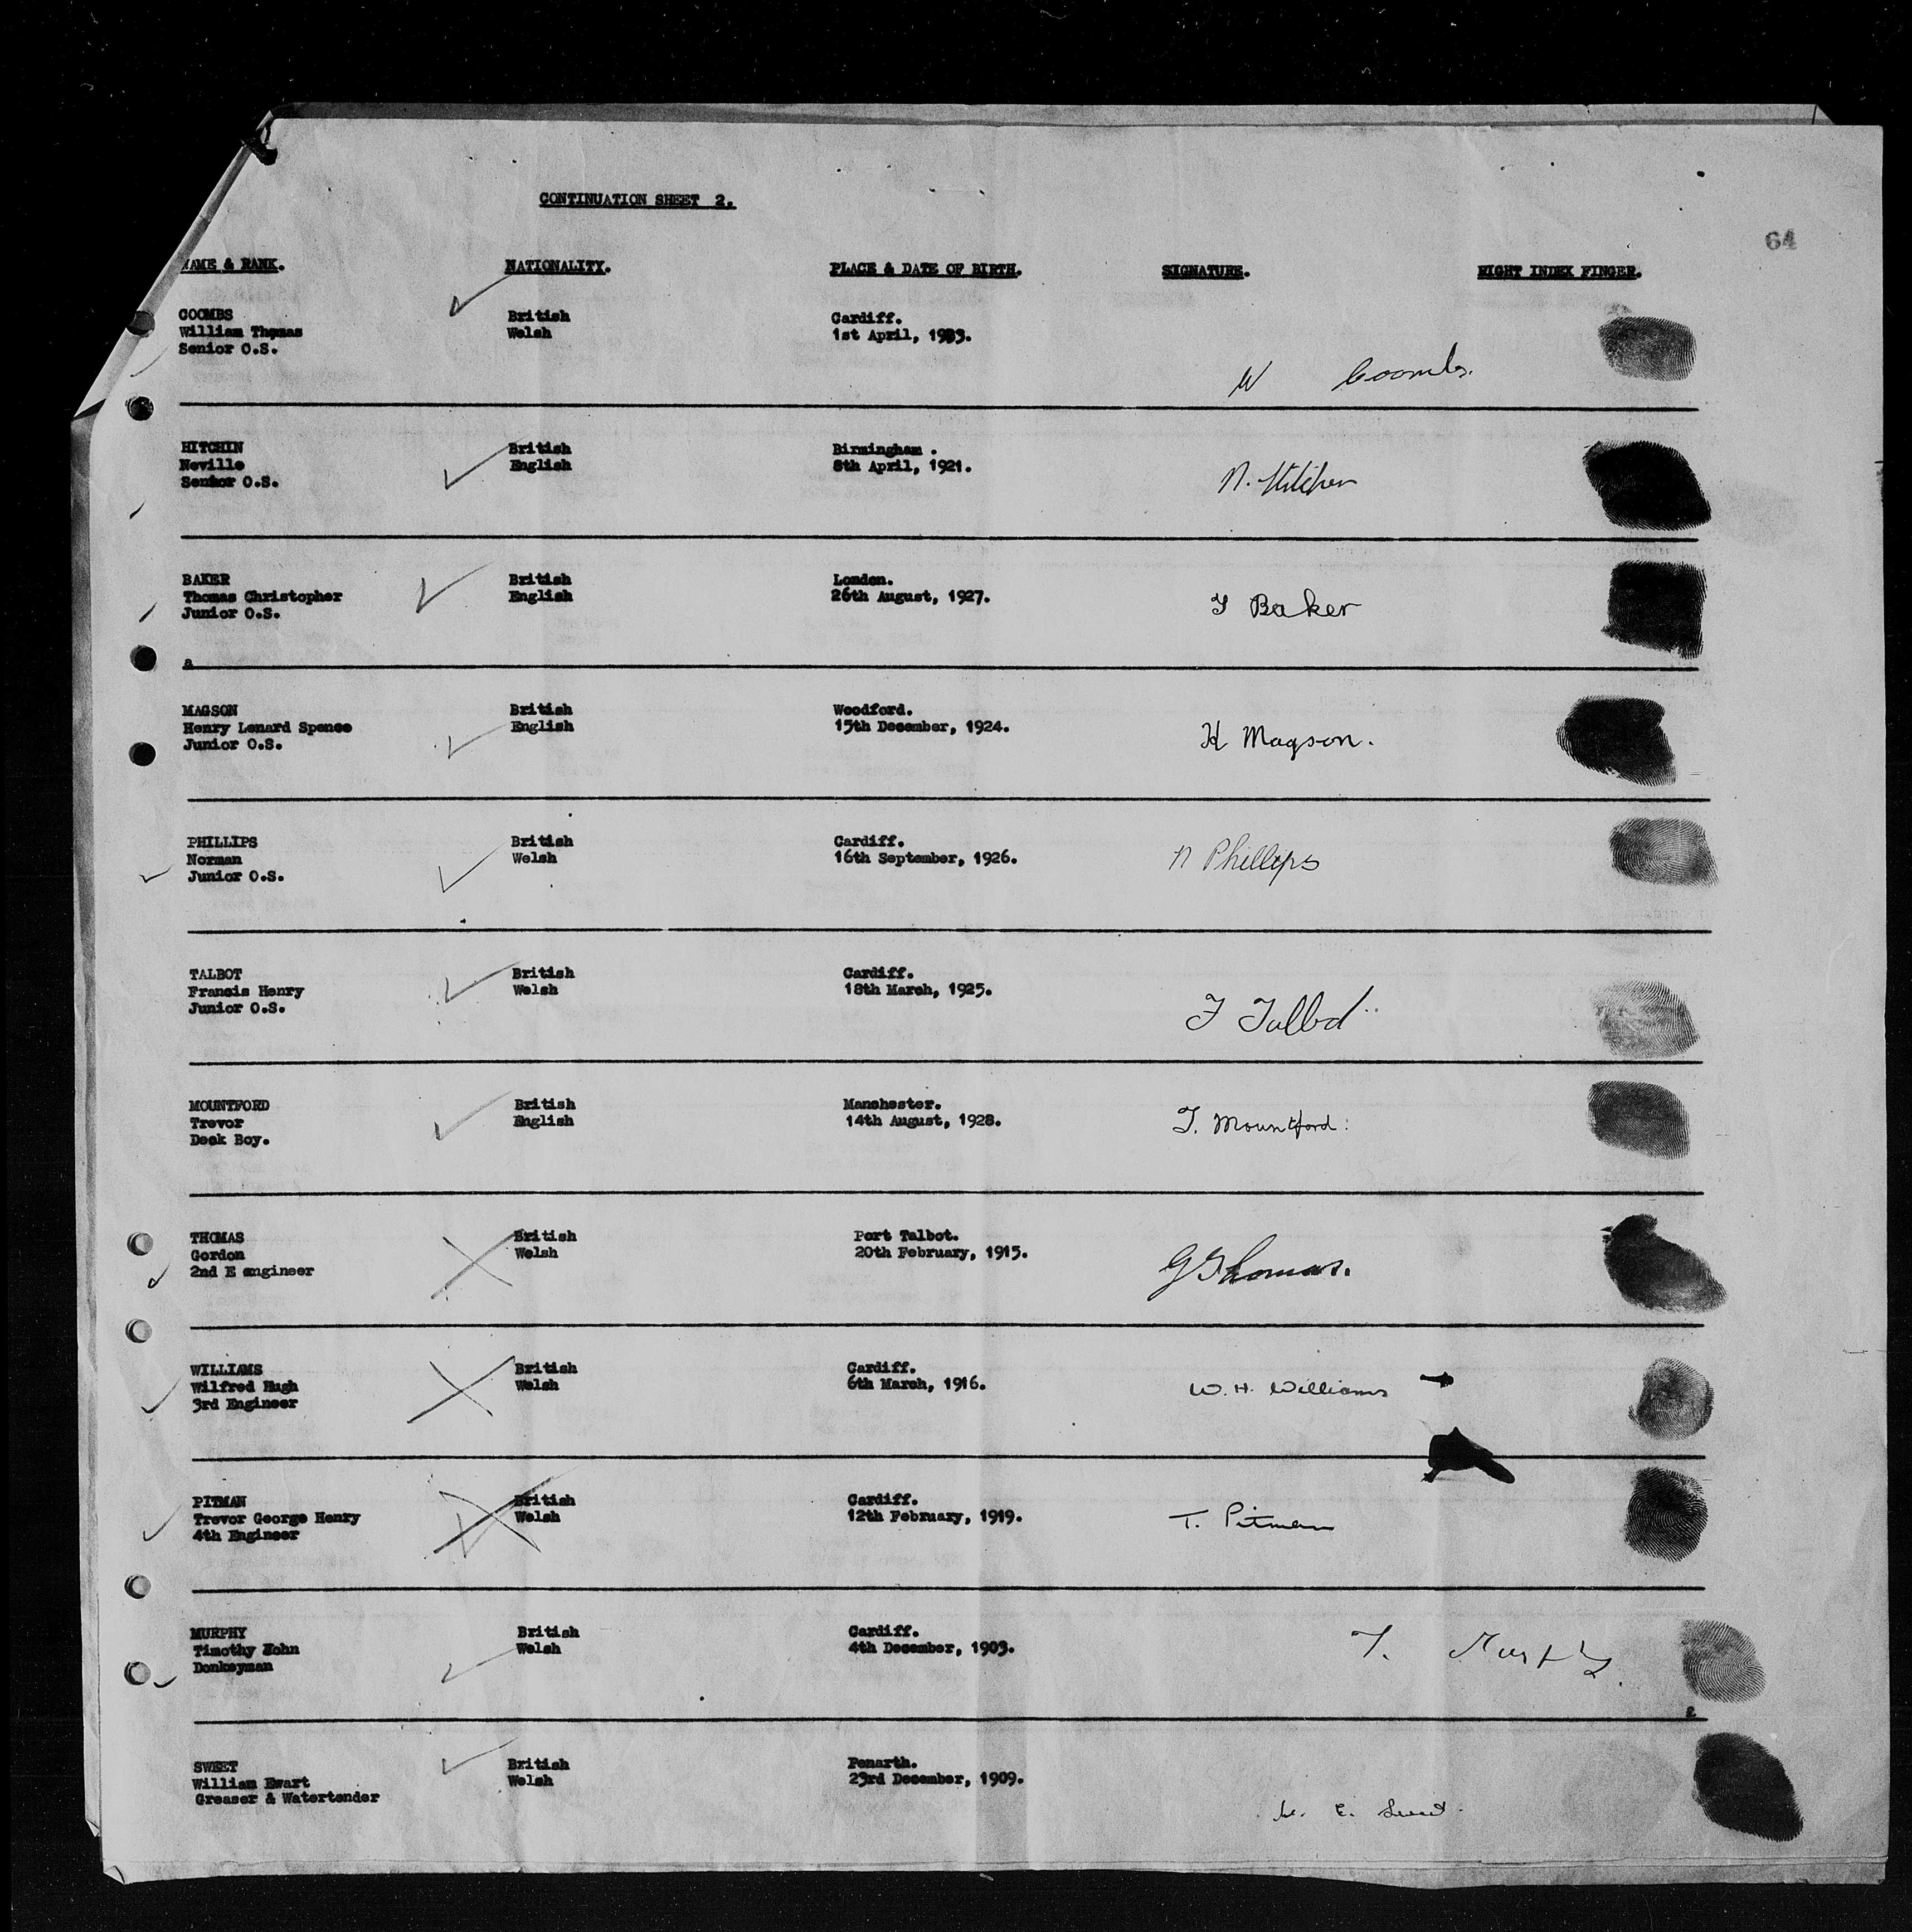 CONTINUATION SHEET 2.
64
NAME & RANK. NATIONALITY. PLACE & DATE OF BIRTH. SIGNATURE. RIGHT INDEX FINGER.
COOMBS British Cardiff.
William Thomas Welsh 1st April,
Senior O.S.
W Coombs.
HITCHIN British Birmingham .
Neville English 8th April, 1921.
Senior O.S. N. Hitchin
BAKER British London.
Thomas Christopher English 26th August, 1927.
Junior O.S. T Baker
a
MAGSON British Woodford.
Henry Lenard Spence English 15th December, 1924.
Junior O.S. H Magson.
PHILLIPS British Cardiff.
Norman Welsh 16th September, 1926.
Junior O.S. N Phillips
TALBOT British Cardiff.
Francis Henry Welsh 18th March, 1925.
Junior O.S. F Talbot
MOUNTFORD British Manchester.
Trevor English 14th August, 1928.
Deck Boy. T. Mountford.
THOMAS British Port Talbot.
Gordon Welsh 20th February, 1915.
2nd E engineer G Thomas.
WILLIAMS British Cardiff.
Wilfred Hugh Welsh 6th March, 1916.
3rd Engineer W. H. Williams
PITMAN British Cardiff.
Trevor George Henry Welsh 12th February, 1919.
4th Engineer T. Pitman
MURPHY British Cardiff.
Timothy John Welsh 4th December, 1903.
Donkeyman T. Murphy
SWEET British Penarth.
William Ewart Welsh 23rd December, 1909.
Greaser & Watertender
W. E. Sweet.